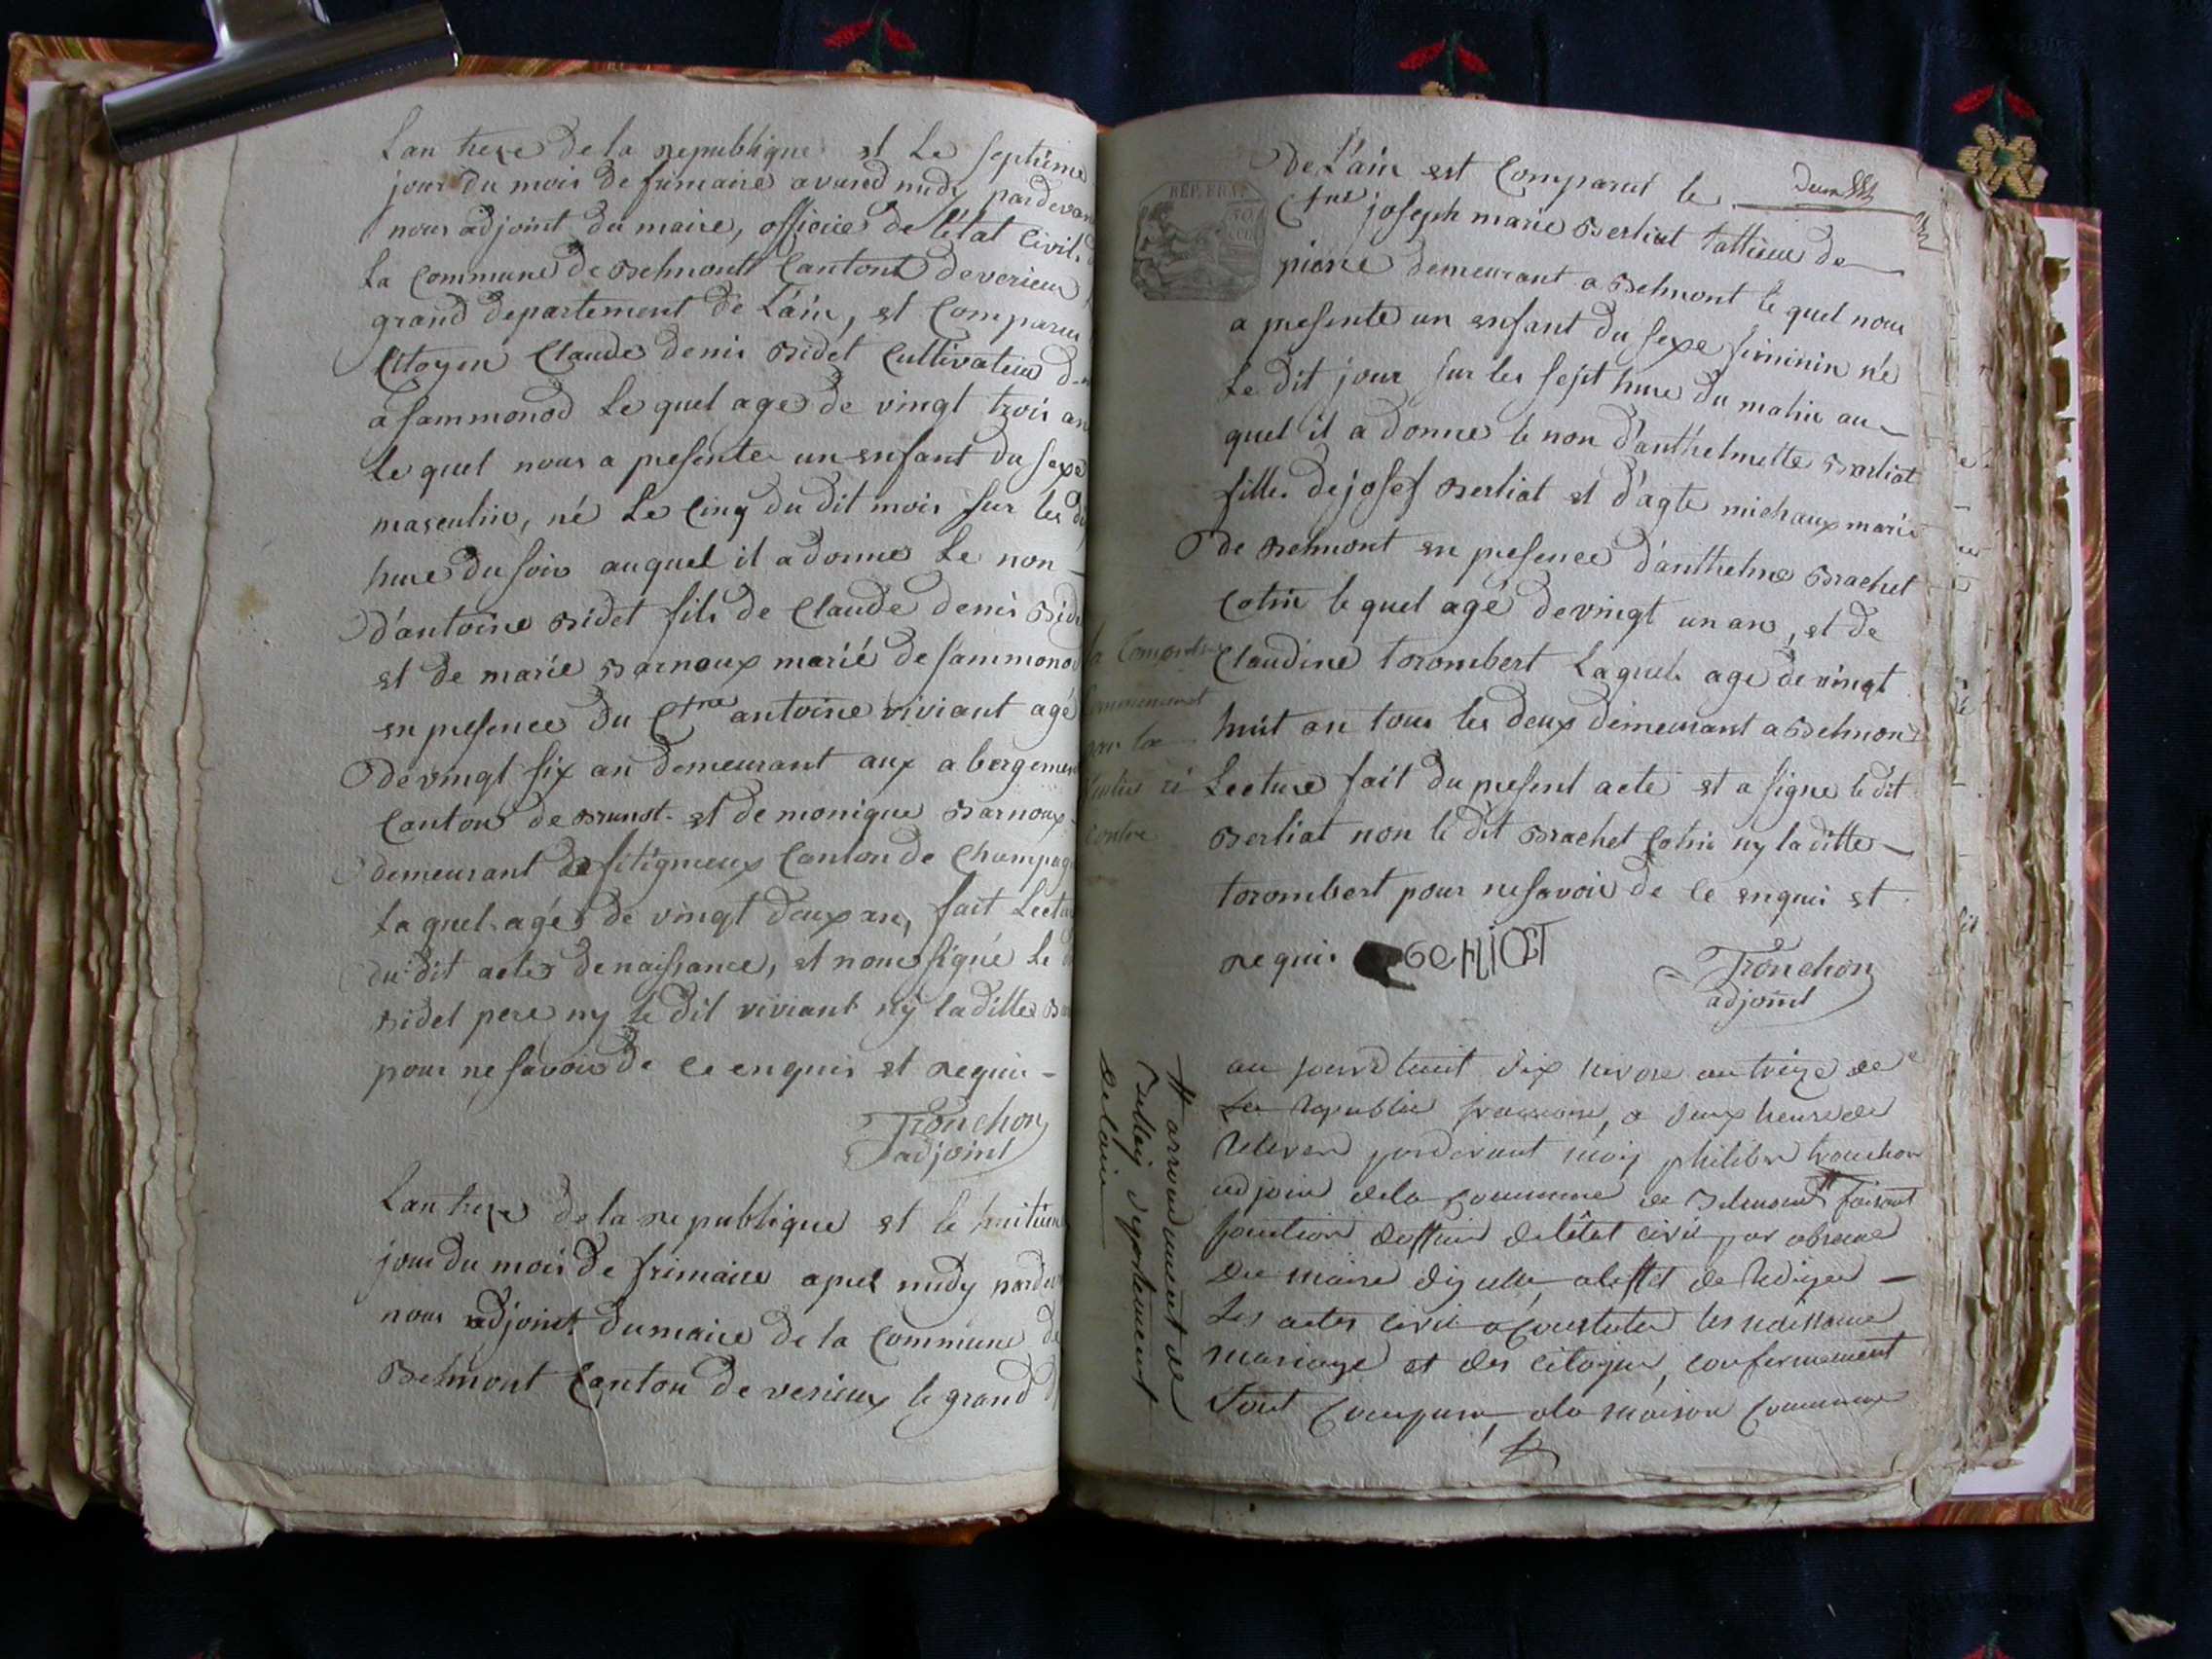 Lan treze de la republique et le septieme
jour du mois de frimaire avand midy pardevan
nous adjoint du maire, officier de l'état civil, d
La commune de Belmont Canton de verieu
grand departement de L'ain, est Comparu
Citoyen Claude denis Bidet Cultivateur
a sammonod Le quel age de vingt trois an
Le quel nous a presente un enfant du sexe
masculin, né Le Cinq du dit mois sur les
hure du soir auquel il a donne Le non
d'antoine Bidet fils de Claude denis Bid
et de marie Barnoux marié de sammonod
en presence du Ctne antoine viviant agé
de vingt six an demeurant aux abergement
Canton de Brunot et de monique Barnoux
demeurant de fitigneux Canton de Champag
La quel agé de vingt deux an, fait Lectu
du dit acte de naissance, et nous signé Le
Bidet pere ny le dit viviant ny la ditte
pour ne savoir de ce enquis et requis
Tronchon
adjoint
Lan treze de la republique et le huitiem
jour du mois de frimaire apres midy pard
nous adjoint du maire de la Commune de
Belmont Canton de verieux le grand
REP. FRA.
de L'ain est Comparut le
Ctne joseph marie Berliat tallieur de
pierre demeurant a Belmont le quel nous
a presente un enfant du sexe feminin né
Le dit jour sur les sept hure du matin au
quel il a donne le non d'anthelmette Berliat
fille de josef Berliat et d'agte michaux marié
de Belmont en presence d'anthelme Brachet
Cotin le quel agé de vingt un an, et de
Claudine torombert Laquel age de vingt
huit an tous les deux demeurant a Belmon
Lecture fait du present acte et a signe le dit
Berliat non le dit Brachet Cotin ny la ditte
torombert pour ne savoir de ce enquis et
requis
Tronchon
adjoint
au jourdhuit dix nivose an treize de
La republic francaise, a deux heure de
relevee pardevant moy philiber tronchon
adjoin de la Commune de Belmont # faisant
fonction doffcier de létat civil par absence
du maire
Les actes civil a Constater les naissance
mariage et des citoyen, confermement
Sont Comparu, a la maison Commune
# arrondiment de
Belley departement
de lain